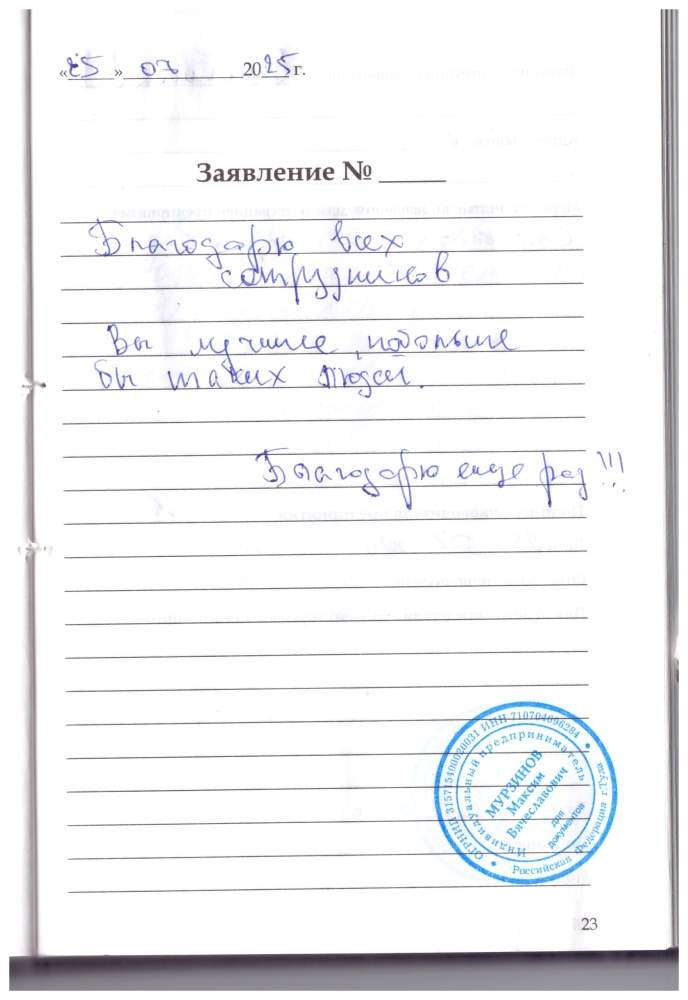 «25» 07 2025 г.
Заявление № _____
Благодарю всех
сотрудников
Вы лучшие, побольше
бы таких людей.
Благодарю еще раз!!!
ОГРНИП 315715400020031 ИНН 710704696284
Российская Федерация г.Тула
Индивидуальный предприниматель
МУРЗИНОВ
Максим
Вячеславович
для
документов
23